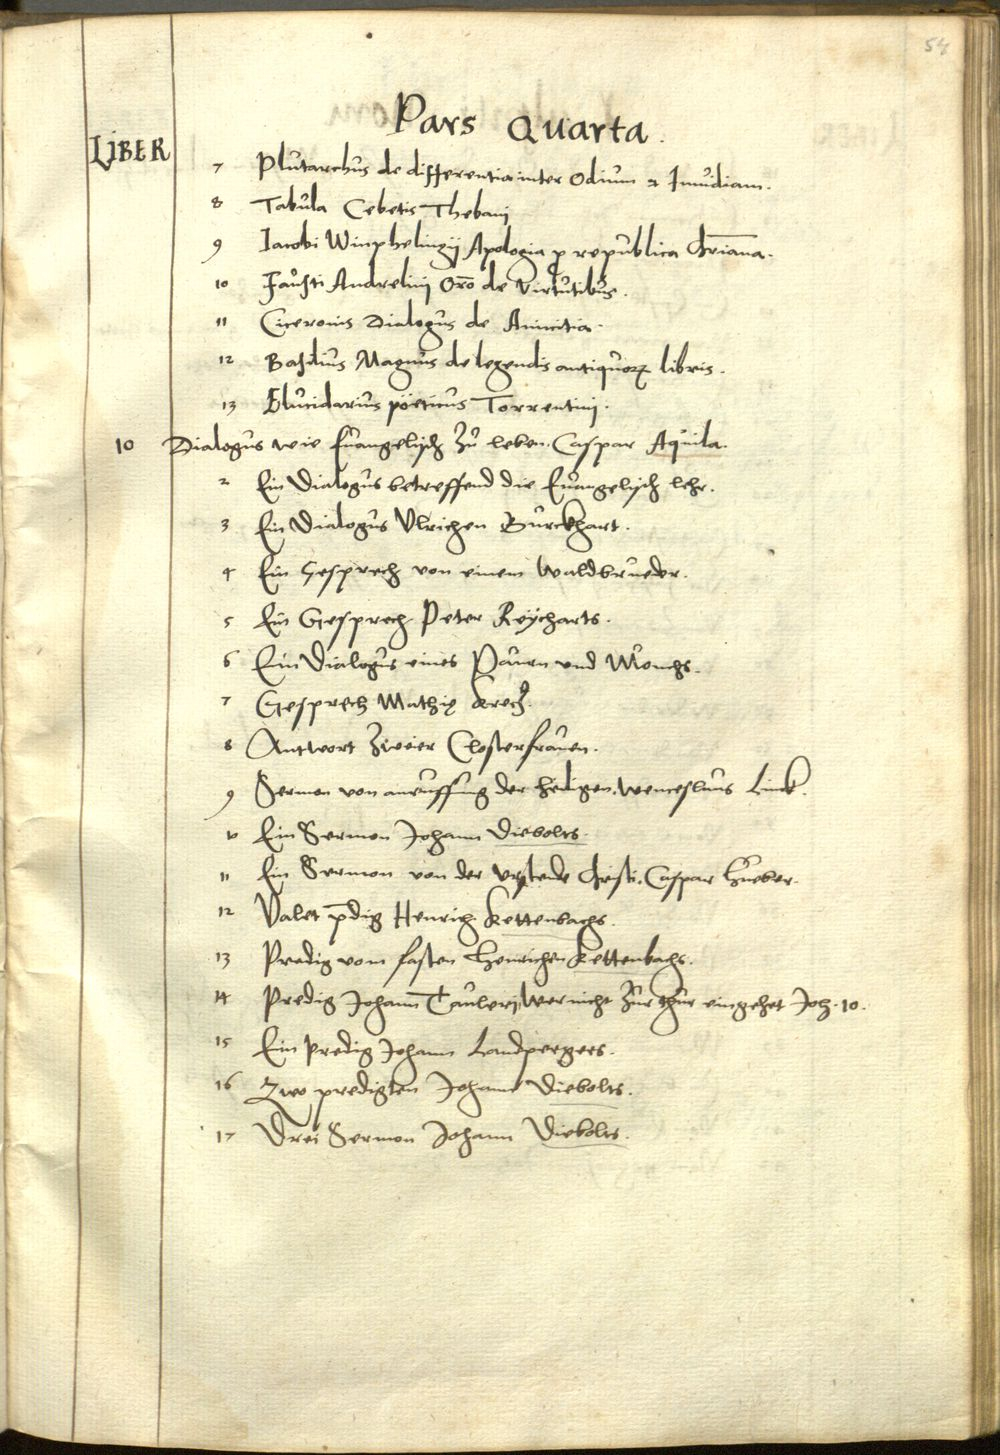 54
Pars Quarta.
LIBER
7 Plutarchus de differentia inter Odium & Inuidiam.
8 Tabula Cebetis Thebanj
9 Iacobi Winphelingij Apologia p republica Chr̄iana.
10 Faůsti Andrelinj Orō de Virtutibůs.
11 Ciceronis Dialogus de Amicitia.
12 Basilius Magnus de legendis antiquoꝝ libris.
13 Elucidarius pöeticus Torrentinj.
10 Dialogus wie Euangelisch Zů leben. Caspar Aquila.
2 Ein Dialogus betreffend die Euangelisch lehr.
3 Ein Dialogus Vlrichen Burckhart.
4 Ein Gesprech von einem Waldbrueder.
5 Ein Gesprech Peter Reÿcharts.
6 Ein Dialogus eines Pauren vnd Munchs.
7 Gesprech Mathię
8 Antwort Zweier Closterfrauen.
9 Sermon von anruffung der heiligen. Wenceslaus Linck.
10 Ein Sermon Johann Diebolts.
11 Ein Sermon von der vrstende Christi. Caspar Hueber.
12 Valet p̄dig Henrich Kettenbachs.
13 Predig vom fasten Henrichen Kettenbachs.
14 Predig Johann Taulerj, Wer nicht Zur thur eingehet Joh. 10.
15 Ein Predig Johann Landspergers.
16 Zwo predigten Johann Diebolts.
17 Drei Sermon Johann Diebolts.